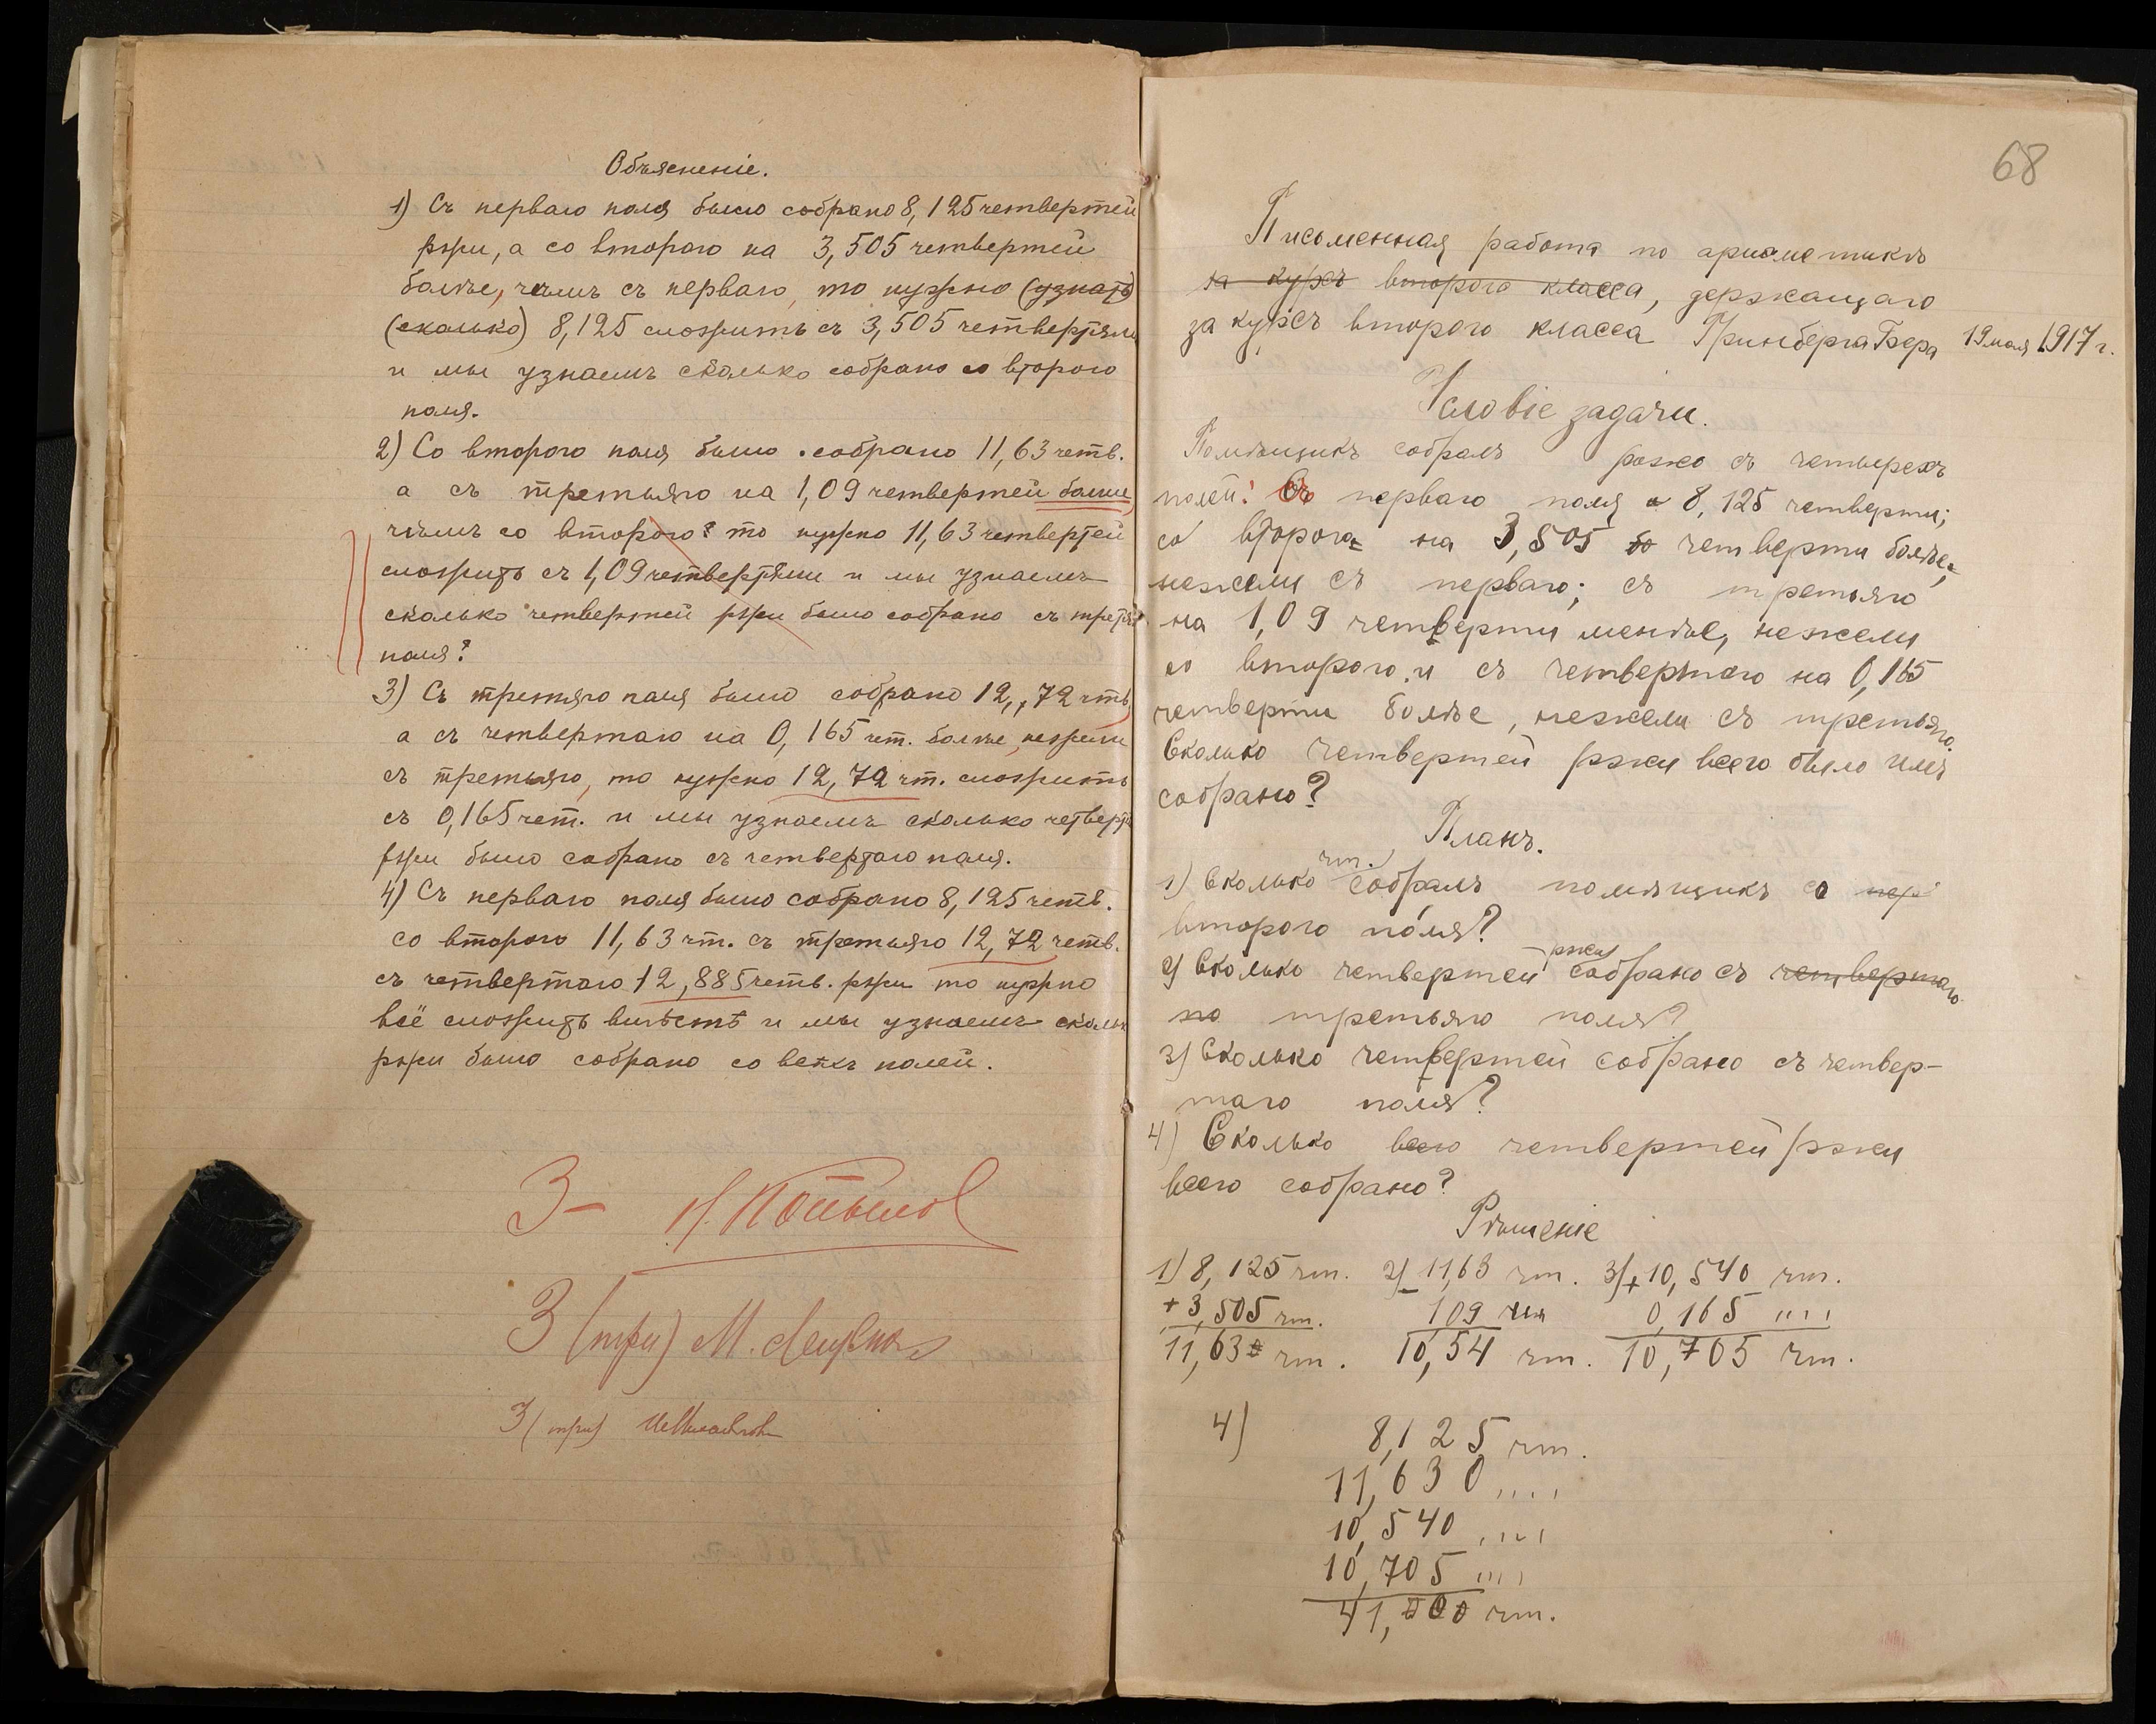 Объясненіе.
1) Съ перваго поля было собрано 8,125 четвертей
ржи, а со второго на 3,505 четвертей
более, чемъ съ перваго, то нужно (узнать)
(сколько) 8,125 сложить съ 3,505 четвертями
и мы узнаемъ сколько собрано со второго
поля.
2) Со второго поля было собрано 11,63 четв.
а съ третьяго на 1,09 четвертей больше
чѣмъ со второго? то нужно 11,63 четвертей
сложить съ 1,09 четвертями и мы узнаемъ
сколько четвертей ржи было собрано съ третьяго
поля?
3) Съ третяго поля было собрано 12,72 чтв.
а съ четвертаго на 0,165 чет. болѣе, нежели
съ третьяго, то нужно 12,72 чт. сложить
съ 0,165 чет. и мы узнаемъ сколько четверт
ржи было собрано съ четвертаго поля.
4) Съ перваго поля было собрано 8,125 четв.
со второго 11,63 чт. съ третьяго 12,72 четв.
съ четвертаго 12,885 четв. ржи то нужно
всё сложить вмѣстѣ и мы узнаемъ сколько
ржи было собрано со всехъ полей.
3-
3 (три) М.
3 (три)
68
Письменная работа по ариѳметикѣ
за курсъ второго класса, держащаго
за курсъ второго класса Гринберга Бера 19 мая 1917 г.
Условіе задачи.
Помѣщикъ собралъ рожь съ четырехъ
полей: Съ перваго поля 8,125 четверти;
со второго на 3,505 четверти более,
нежели съ перваго; съ третьяго
на 1,09 четверти менѣе, нежели
со второго и съ четвертаго на 0,165
четверти болѣе, нежели съ третьяго.
Сколько четвертей ржи всего было имъ
собрано?
Планъ.
1) Сколько чт. собралъ помѣщикъ со пер
второго поля?
2) Сколько четвертей ржи собрано съ четвертаго
по третьяго поля?
3) Сколько четвертей собрано съ четвер-
таго поля?
4) Сколько всего четвертей ржи
всего собрано?
Рѣшеніе
1) 8,125 чт. 2) 11,63 чт. 3) + 10,540 чт.
+ 3,505 чт. 1,09 чт. 0,165 ""
11,630 чт. 10,54 чт. 10,705 чт.
4) 8,125 чт.
11,630 ""
10,540 ""
10,705 ""
41,000 чт.